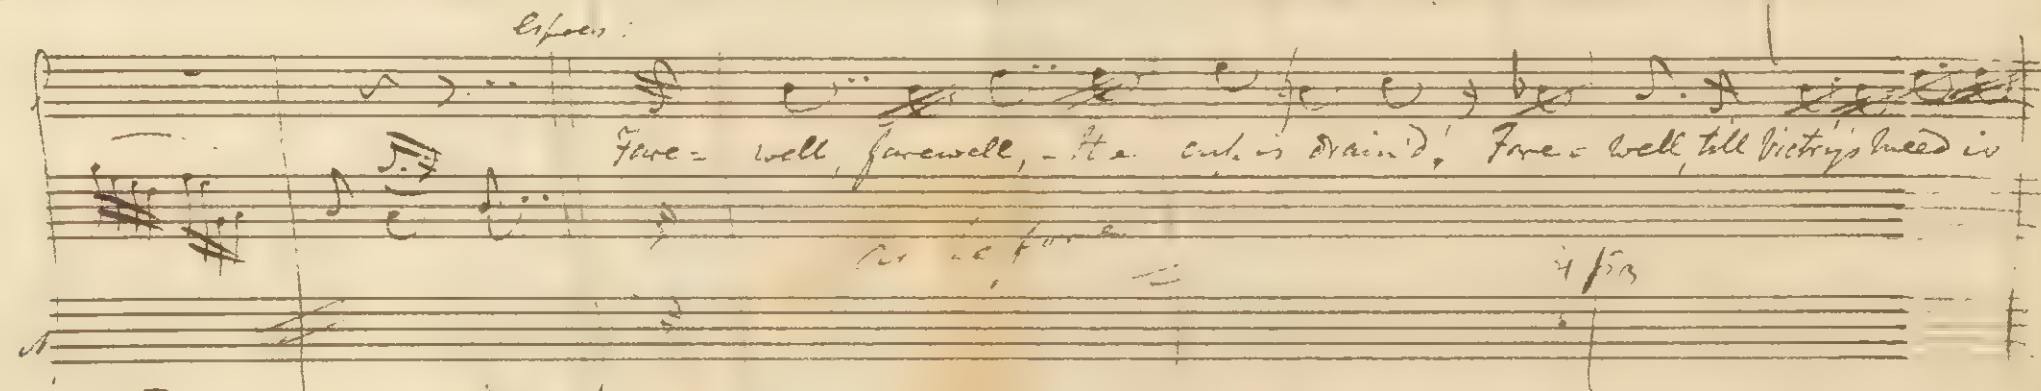 espres:
Fare= well, farewell, - the cup is drain'd! Fare= well, till Vict'ry's meed is
as before